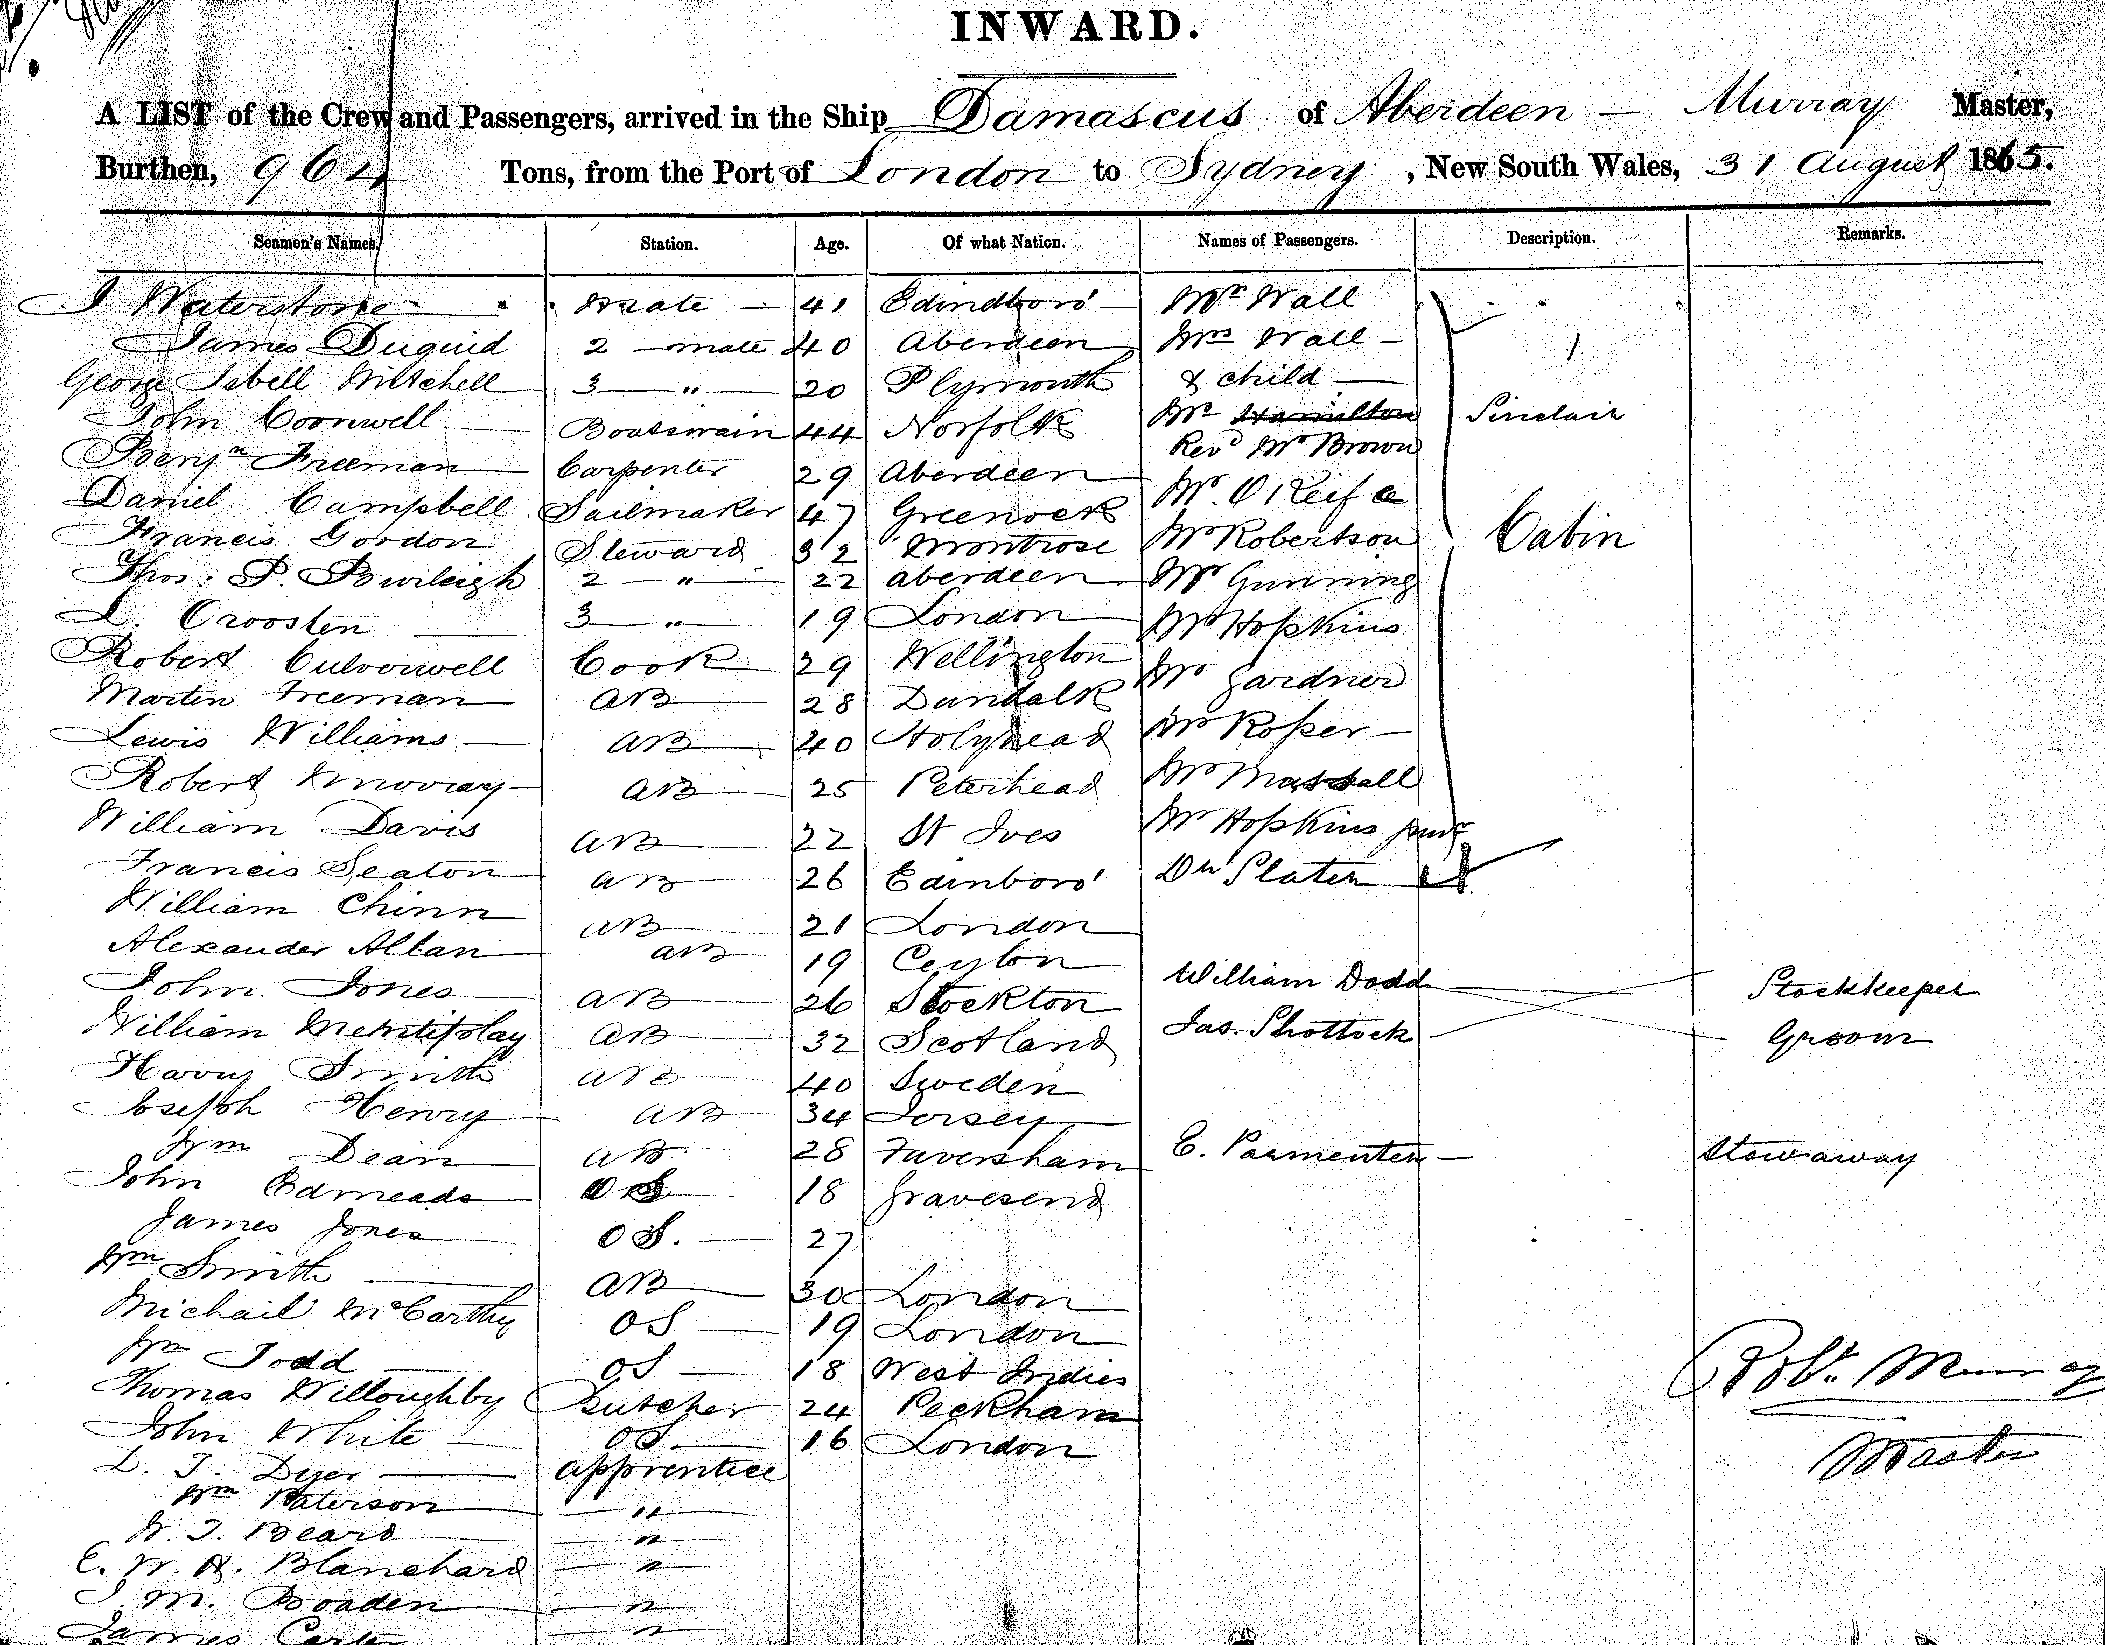 INWARD.
A LIST of the Crew and Passengers, arrived in the Ship Damascus of Aberdeen — Murray Master,
Burthen, 964 Tons, from the Port of London to Sydney, New South Wales, 31 August 1865.
Seamen's Names. Station. Age. Of what Nation. Names of Passengers. Description. Remarks.
J Waterstone mate 41 Edindboro' Mr Wall
James Duguid 2 mate 40 Aberdeen Mrs Wall
George Isbell Mitchell 3 " 20 Plymouth & child
John Cornwell Boatswain 44 Norfolk Mr Hamilton Sinclair
Revd Mr Brown
Benjn Freeman Carpenter 29 Aberdeen
Daniel Campbell Sailmaker 47 Greenock Mr O Keife
Francis Gordon Steward 32 Montrose Mr Robertson Cabin
Thos. P. 2 " 22 aberdeen Mr Gunning
L. Croosten 3 " 19 London Mr Hopkins
Robert Culvorwell Cook 29 Wellington Mr Gardner
Martin Freeman AB 28 Dundalk
Lewis Williams AB 40 Holyhead Mr Roper
Robert Murray AB 25 Peterhead Mr Marshall
William Davis AB 22 St Ives Mr Hopkins junr
Francis Seaton AB 26 Edinboro' Dr Slater
William Chinn AB 21 London
Alexander Allan AB 19 Ceylon
John Jones AB 26 Stockton William Dodd Stockkeeper
William AB 32 Scotland Jas. Shottock Groom
Harry Smith AB 40 Sweden
Joseph Henry AB 34 Jersey
Wm Dean AB 28 Faversham E. Parmenter Stowaway
John Edmeads OS 18 Gravesend
James Jones OS. 27
Wm Smith AB 30 London
Michail McCarthy OS 19 London
Wm Todd OS 18 West Indies
Robt. Murray
Thomas Willoughby Butcher 24 Peckham
John White OS. 16 London
Master
L. T. Dyer apprentice
Wm Paterson "
W. T. Beard "
E. W. A. Blanchard "
J. M. Boaden "
James Carter "